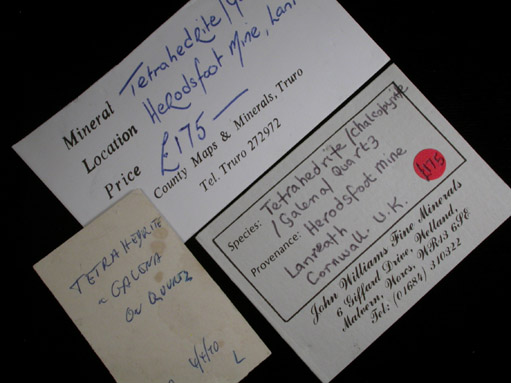 Mineral Tetrahedrite/
Location Herodsfoot Mine,
Price £175
County Maps & Minerals, Truro
Tel. Truro 272972
Species: Tetrahedrite/Chalcopyrite
/Galena/Quartz
Provenance: Herodsfoot Mine
Lanreath
Cornwall. U.K.
£175
John Williams Fine Minerals
6 Giffard Drive, Welland,
Malvern, Worcs, WR13 6SE
Tel: (01684) 310322
TETRAHEDRITE
GALENA
ON QUARTZ
L